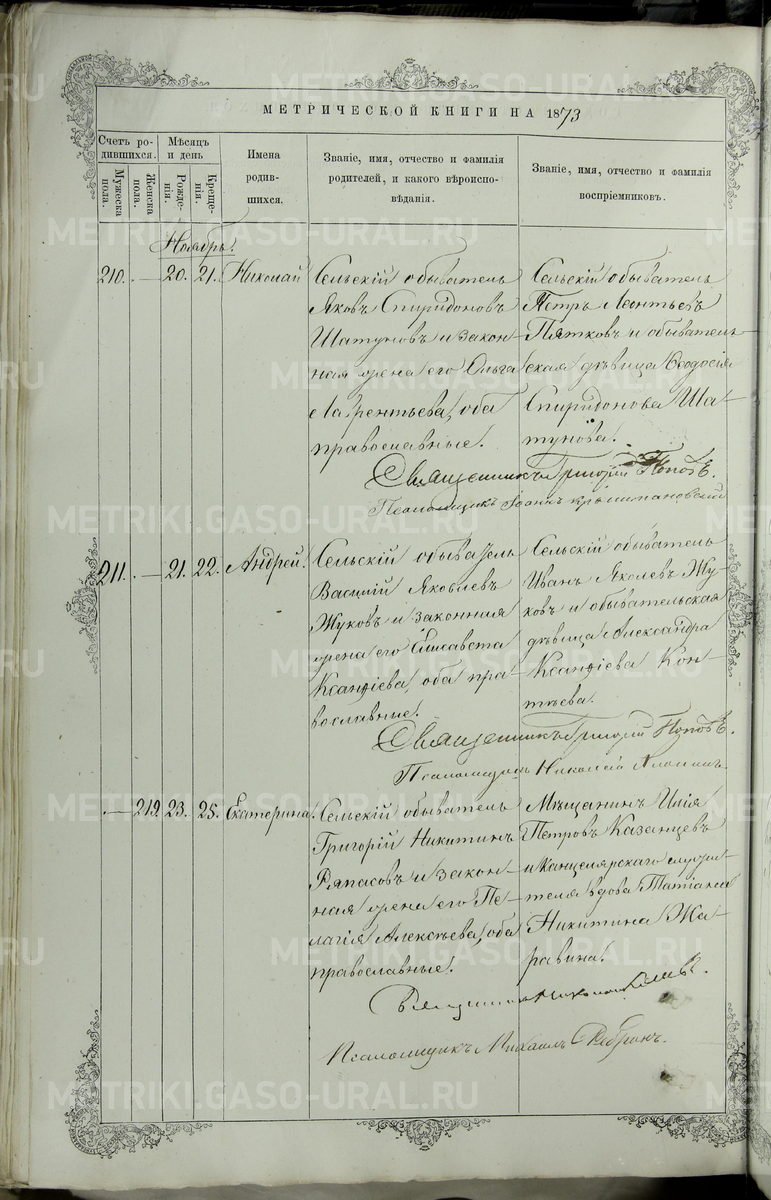 МЕТРИЧЕСКОЙ КНИГИ НА 1873
Счетъ ро-
дившихся.
Мужеска
пола.
Женска
пола.
Мѣсяцъ
и день
Рожде-
нія.
Креще-
нія.
Имена
родив-
шихся.
Званіе, имя, отчество и фамилія
родителей, и какого вѣроиспо-
вѣданія.
Званіе, имя, отчество и фамилія
воспріемниковъ.
Ноябрь.
210. — 20. 21. Николай
Сельскій обыватель
Яковъ Спиридоновъ
Шатуновъ и закон-
ная жена его Ольга
Лаврентьева, оба
православные.
Сельскій обыватель
Петръ Леонтьевъ
Пятковъ и обыватель-
ская дѣвица Ѳеодосія
Спиридонова Ша-
тунова.
Священникъ Григорій Поповъ.
Псаломщикъ Іоаннъ
211. — 21. 22. Андрей.
Сельскій обыватель
Василій Яковлевъ
Жуковъ и законная
жена его Елисавета
оба пра-
вославные.
Сельскій обыватель
Иванъ Яковлевъ Жу-
ковъ и обывательская
дѣвица Александра
Кон-
тѣева.
Священникъ Григорій Поповъ.
Псаломщикъ Николай
— 212. 23. 25. Екатерина.
Сельскій обыватель
Григорій Никитинъ
и закон-
ная жена его Пе-
лагія Алексѣева, оба
православные.
Мѣщанинъ Илія
Петровъ Казанцевъ
и Канцелярскаго служи-
теля вдова Татіана
Никитина Жа-
равина.
Священникъ
Псаломщикъ Михаилъ
METRIKI.GASO-URAL.RU